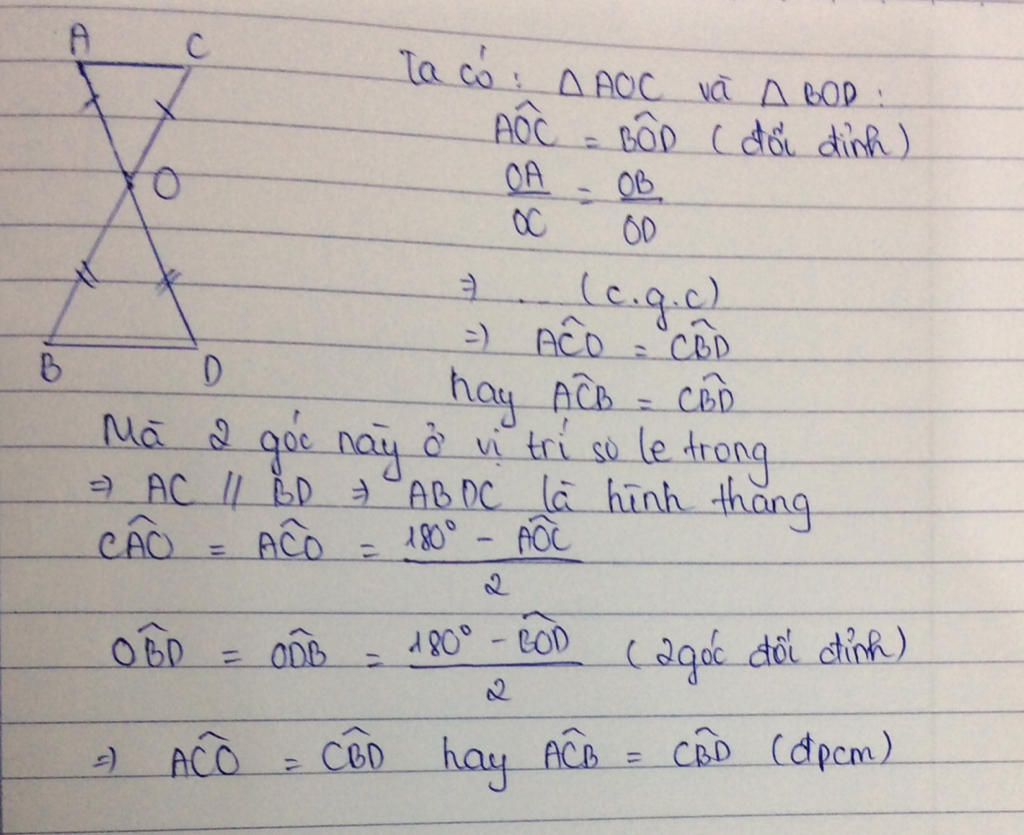 A
C
O
B
D
Ta có : △ AOC và △ BOD :
AÔC = BÔD ( đối đỉnh )
OA/OC = OB/OD
⇒ .... (c.g.c)
⇒ AĈO = CB̂D
hay AĈB = CB̂D
Mà 2 góc này ở vị trí so le trong
⇒ AC // BD ⇒ ABDC là hình thang
CÂO = AĈO = (180° - AÔC)/2
OB̂D = OD̂B = (180° - BÔD)/2 ( 2 góc đối đỉnh )
⇒ AĈO = CB̂D hay AĈB = CB̂D (đpcm)